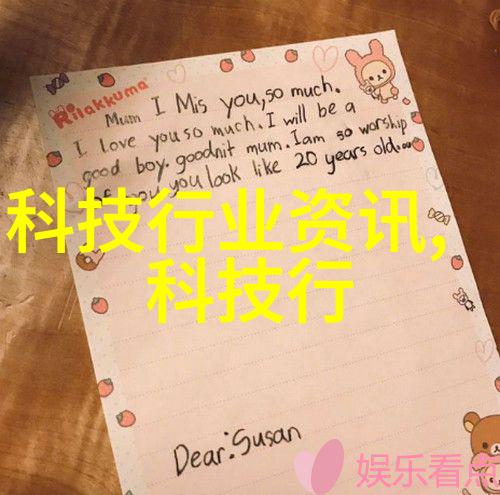 Rilakkuma
Mum I Mis you,so much.
I love you so much. I will be a
good boy. goodnit mum. I am so worship
of you you look like 20 years old.
科技行业资讯,
科技行
Dear:Susan
娱乐看点